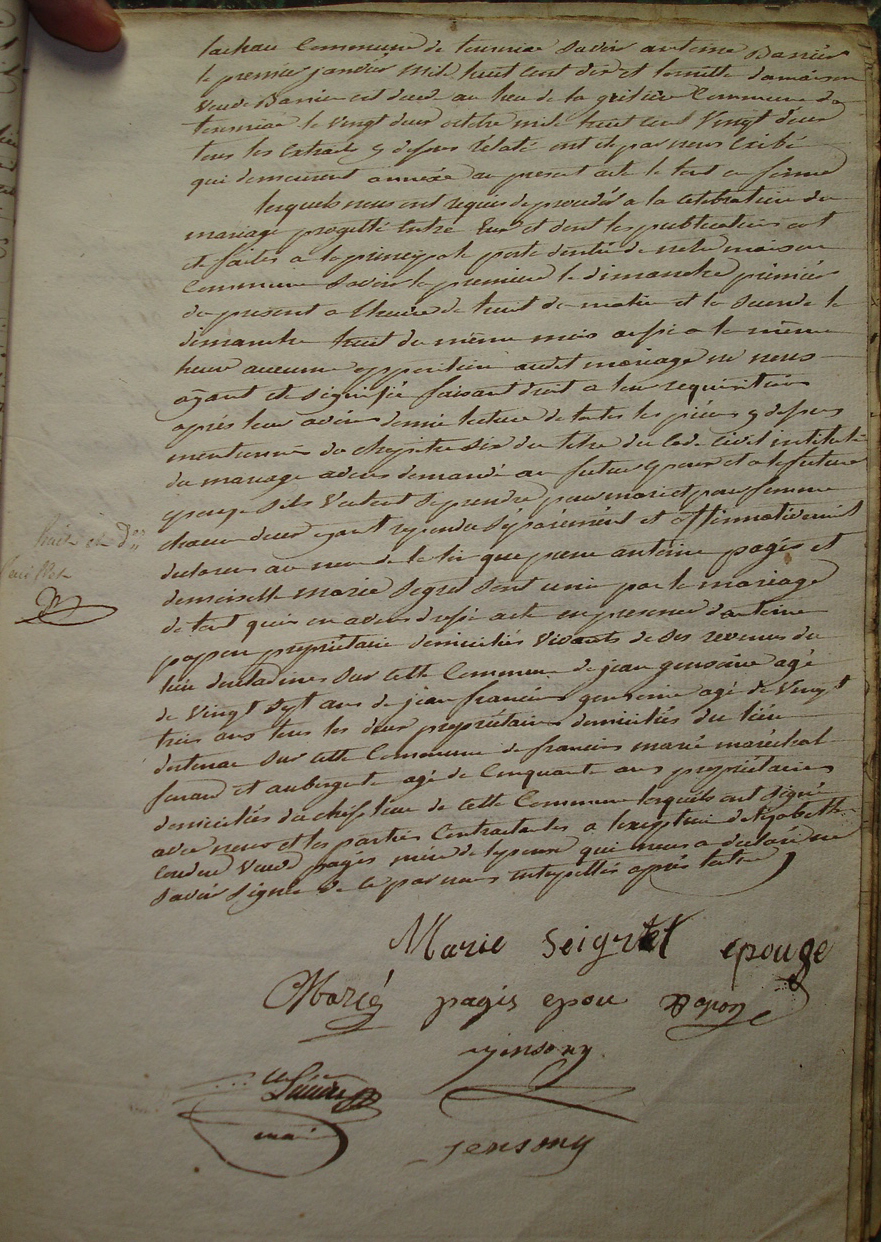 commune de tourniac savoir antoine Barrier
le premier janvier mil huit cent dix et
Veuve Barrier est décédé au lieu de la commune de
tourniac le vingt deux octobre mil huit cent vingt deux
tous les extraits y dessus relaté ont été par nous
qui demeurent annexé au present acte le tout en forme
lesquels nous ont requis de proceder a la celebration du
mariage progetté entre Eux et dont les publications ont
été faites a la principale porte d'entrée de notre maison
Commune Savoir la premiere le dimanche premier
du present a l'heure de huit du matin et la seconde le
dimanche huit du même mois aussi a la même
heure aucune opposition audit mariage ne nous
ayant été signifiée faisant droit a leur requisition
après leur avoir donné lecture de toutes les pièces y dessus
mentionnés du chapitre Six du titre du Code Civil intitulé
du mariage avons demandé au futur epoux et a la future
epouge s'ils Veulent Se prendre pour mari et pour femme
chacun deux ayant repondu Séparément et affirmativement
declarons au nom de la loi que pierre antoine pagés et
demoiselle marie Segret Sont unis par le mariage
de tout quoi en avons dressé acte en presence d'antoine
papon propriétaire domicilié Vivants de Ses revenus du
lieu sur cette Commune de jean gensonie agé
de Vingt Sept ans de jean françois gensonie agé de Vingt
trois ans tous les deux propriétaires domiciliés du lieu
sur cette Commune de françois marié maréchal
ferand et aubergiste agé de Cinquante ans propriétaires
domiciliés du chef lieu de cette Commune lesquels ont Signé
avec nous et les parties Contractantes a l'exception d'elizabeth
Veuve pagés mère de l'epoux qui nous a declaré ne
Savoir Signer de ce par nous interpellés après lecture
Marie Seigret epouge
Marié pagès epou papon
jensony
maire
jensony